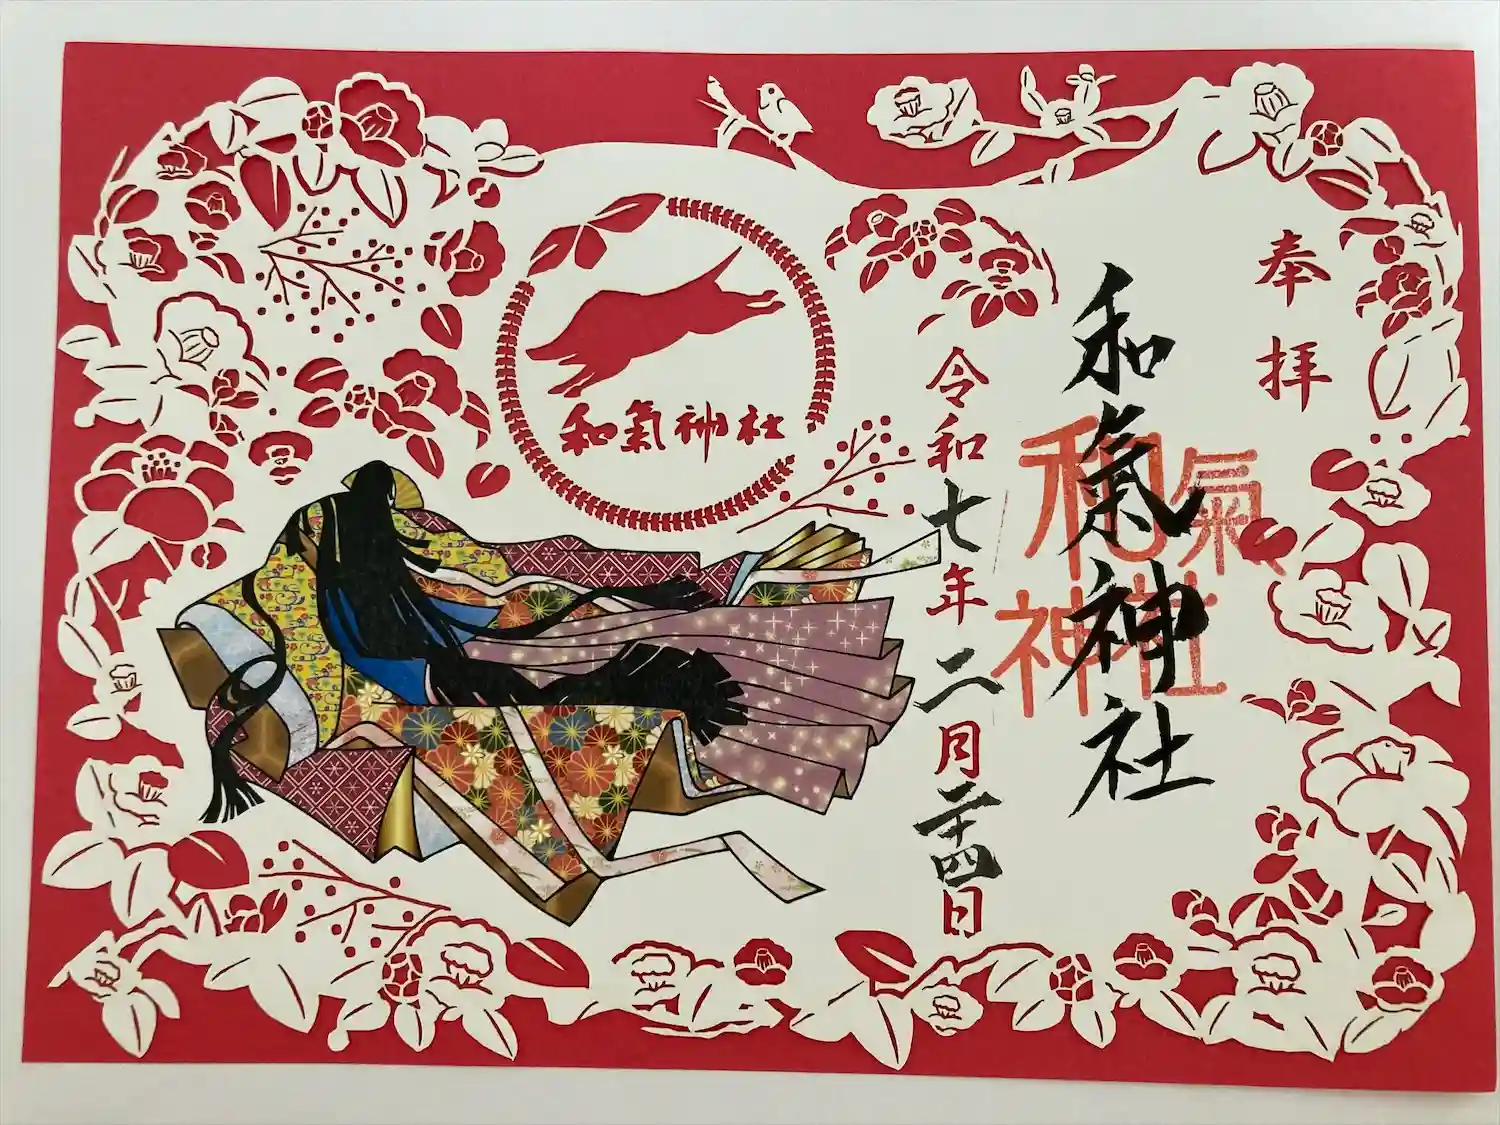 奉拝
和氣神社
和氣
神社
令和七年二月二十四日
和氣神社